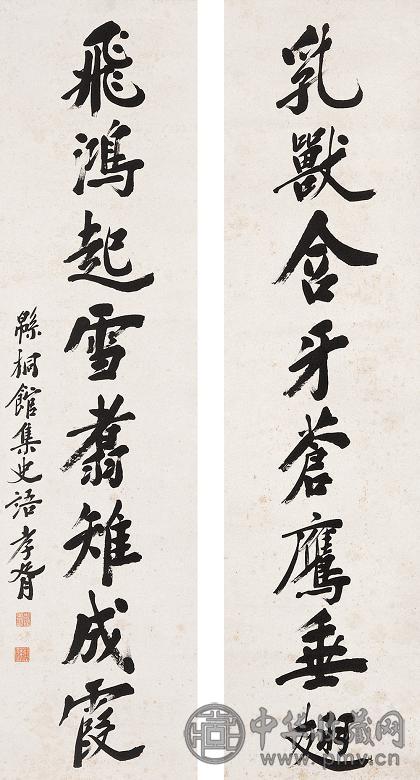 乳獸含牙蒼鷹垂翅
飛鴻起雪翥雉成霞
緜桐館集史語 孝胥
中华收藏网
www.pmv.cn